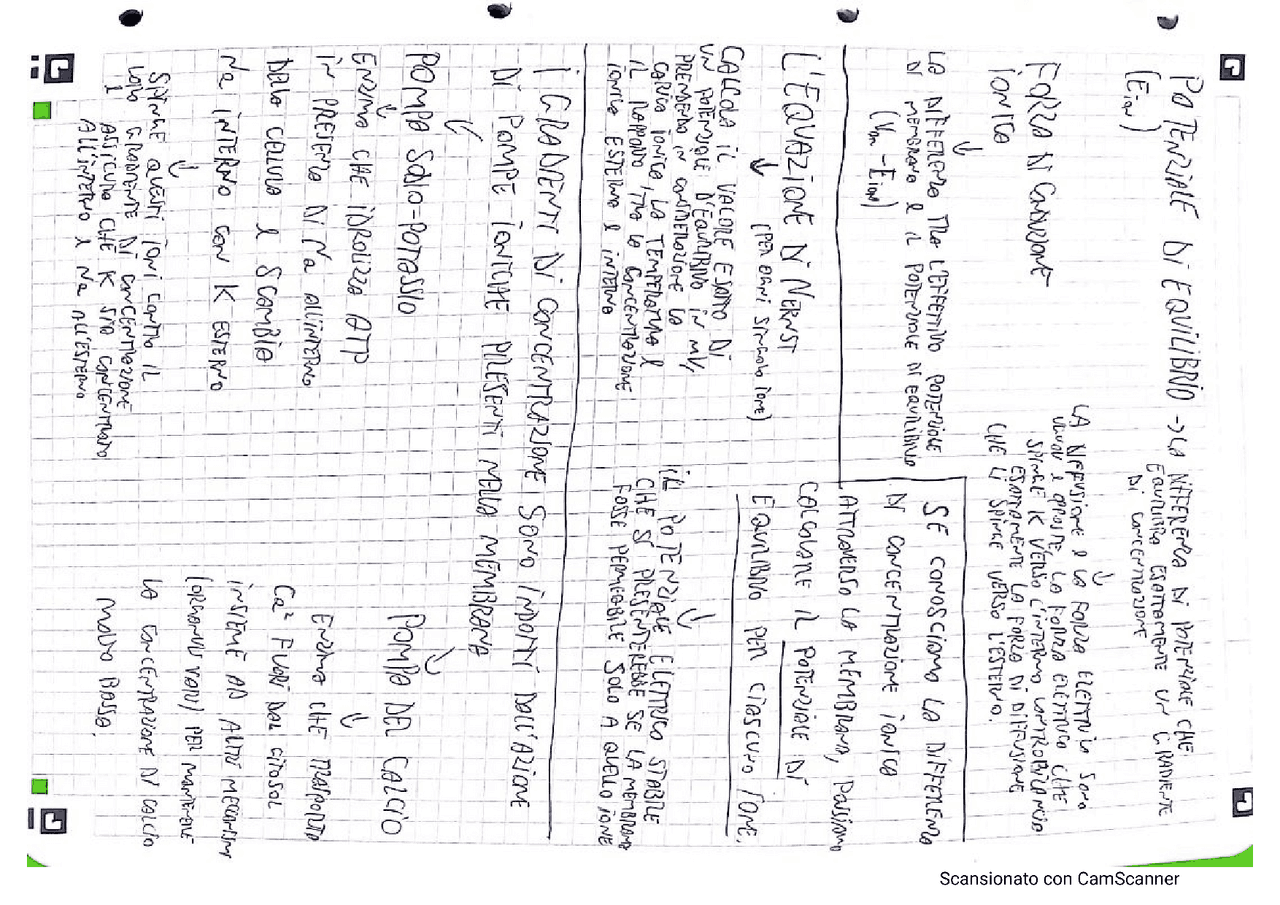 POTENZIALE DI EQUILIBRIO → LA DIFFERENZA DI POTENZIALE CHE
(Eion)
EQUILIBRA ESATTAMENTE UN GRADIENTE
DI CONCENTRAZIONE
LA DIFFUSIONE E LA FORZA ELETTRICA SONO
UGUALI E OPPOSTE, LA FORZA ELETTRICA CHE
SPINGE K VERSO L'INTERNO CONTROBILANCIA
ESATTAMENTE LA FORZA DI DIFFUSIONE
CHE LI SPINGE VERSO L'ESTERNO.
FORZA DI CONDUZIONE
IONICA
LA DIFFERENZA TRA L'EFFETTIVO POTENZIALE
DI MEMBRANA E IL POTENZIALE DI EQUILIBRIO
(Vm - Eion)
SE CONOSCIAMO LA DIFFERENZA
DI CONCENTRAZIONE IONICA
ATTRAVERSO LA MEMBRANA, POSSIAMO
CALCOLARE IL POTENZIALE DI
EQUILIBRIO PER CIASCUNO IONE.
L'EQUAZIONE DI NERNST
(PER OGNI SINGOLO IONE)
CALCOLA IL VALORE ESATTO DI
UN POTENZIALE D'EQUILIBRIO IN mV,
PRENDENDO IN CONSIDERAZIONE LA
CARICA IONICA, LA TEMPERATURA E
IL RAPPORTO TRA LA CONCENTRAZIONE
IONICA ESTERNA E INTERNA
IL POTENZIALE ELETTRICO STABILE
CHE SI PRESENTEREBBE SE LA MEMBRANA
FOSSE PERMEABILE SOLO A QUELLO IONE
I GRADIENTI DI CONCENTRAZIONE SONO INDOTTI DALL'AZIONE
DI POMPE IONICHE PRESENTI NELLA MEMBRANA
POMPA SODIO-POTASSIO
ENZIMA CHE IDROLIZZA ATP
IN PRESENZA DI Na ALL'INTERNO
DELLA CELLULA E SCAMBIA
Na INTERNO CON K ESTERNO
SPINGE QUESTI IONI CONTRO IL
LORO GRADIENTE DI CONCENTRAZIONE
ASSICURA CHE K SIA CONCENTRATO
ALL'INTERNO E Na ALL'ESTERNO
POMPA DEL CALCIO
ENZIMA CHE TRASPORTA
Ca² FUORI DAL CITOSOL
INSIEME AD ALTRI MECCANISMI
(ORGANULI VARI) PER MANTENERE
LA CONCENTRAZIONE DI CALCIO
MOLTO BASSA.
Scansionato con CamScanner